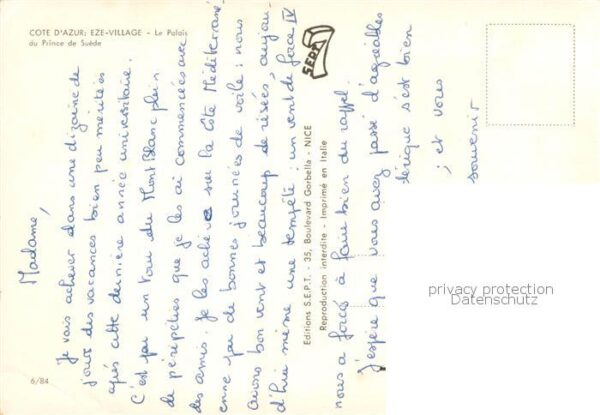 COTE D'AZUR: EZE-VILLAGE - Le Palais
du Prince de Suède
Madame,
Je vais achever dans une dizaine de
jours des vacances bien peu méritées
après cette dernière année universitaire.
C'est par un tour du Mont Blanc plein
de péripéties que je les ai commencées avec
des amis. Je les achève sur la Côte Méditerrané
enne par de bonnes journées de voile; nous
avons bon vent et beaucoup de risées, aujour
d'hui même une tempête: un vent de force IV
nous a forcés à faire bien du rappel.
J'espère que vous avez passé d'agréables
térique s'est bien
; et vous
souvenir
SEPT
Editions S.E.P.T. - 35, Boulevard Gorbella - NICE
Reproduction interdite - Imprimé en Italie
6/84
privacy protection
Datenschutz